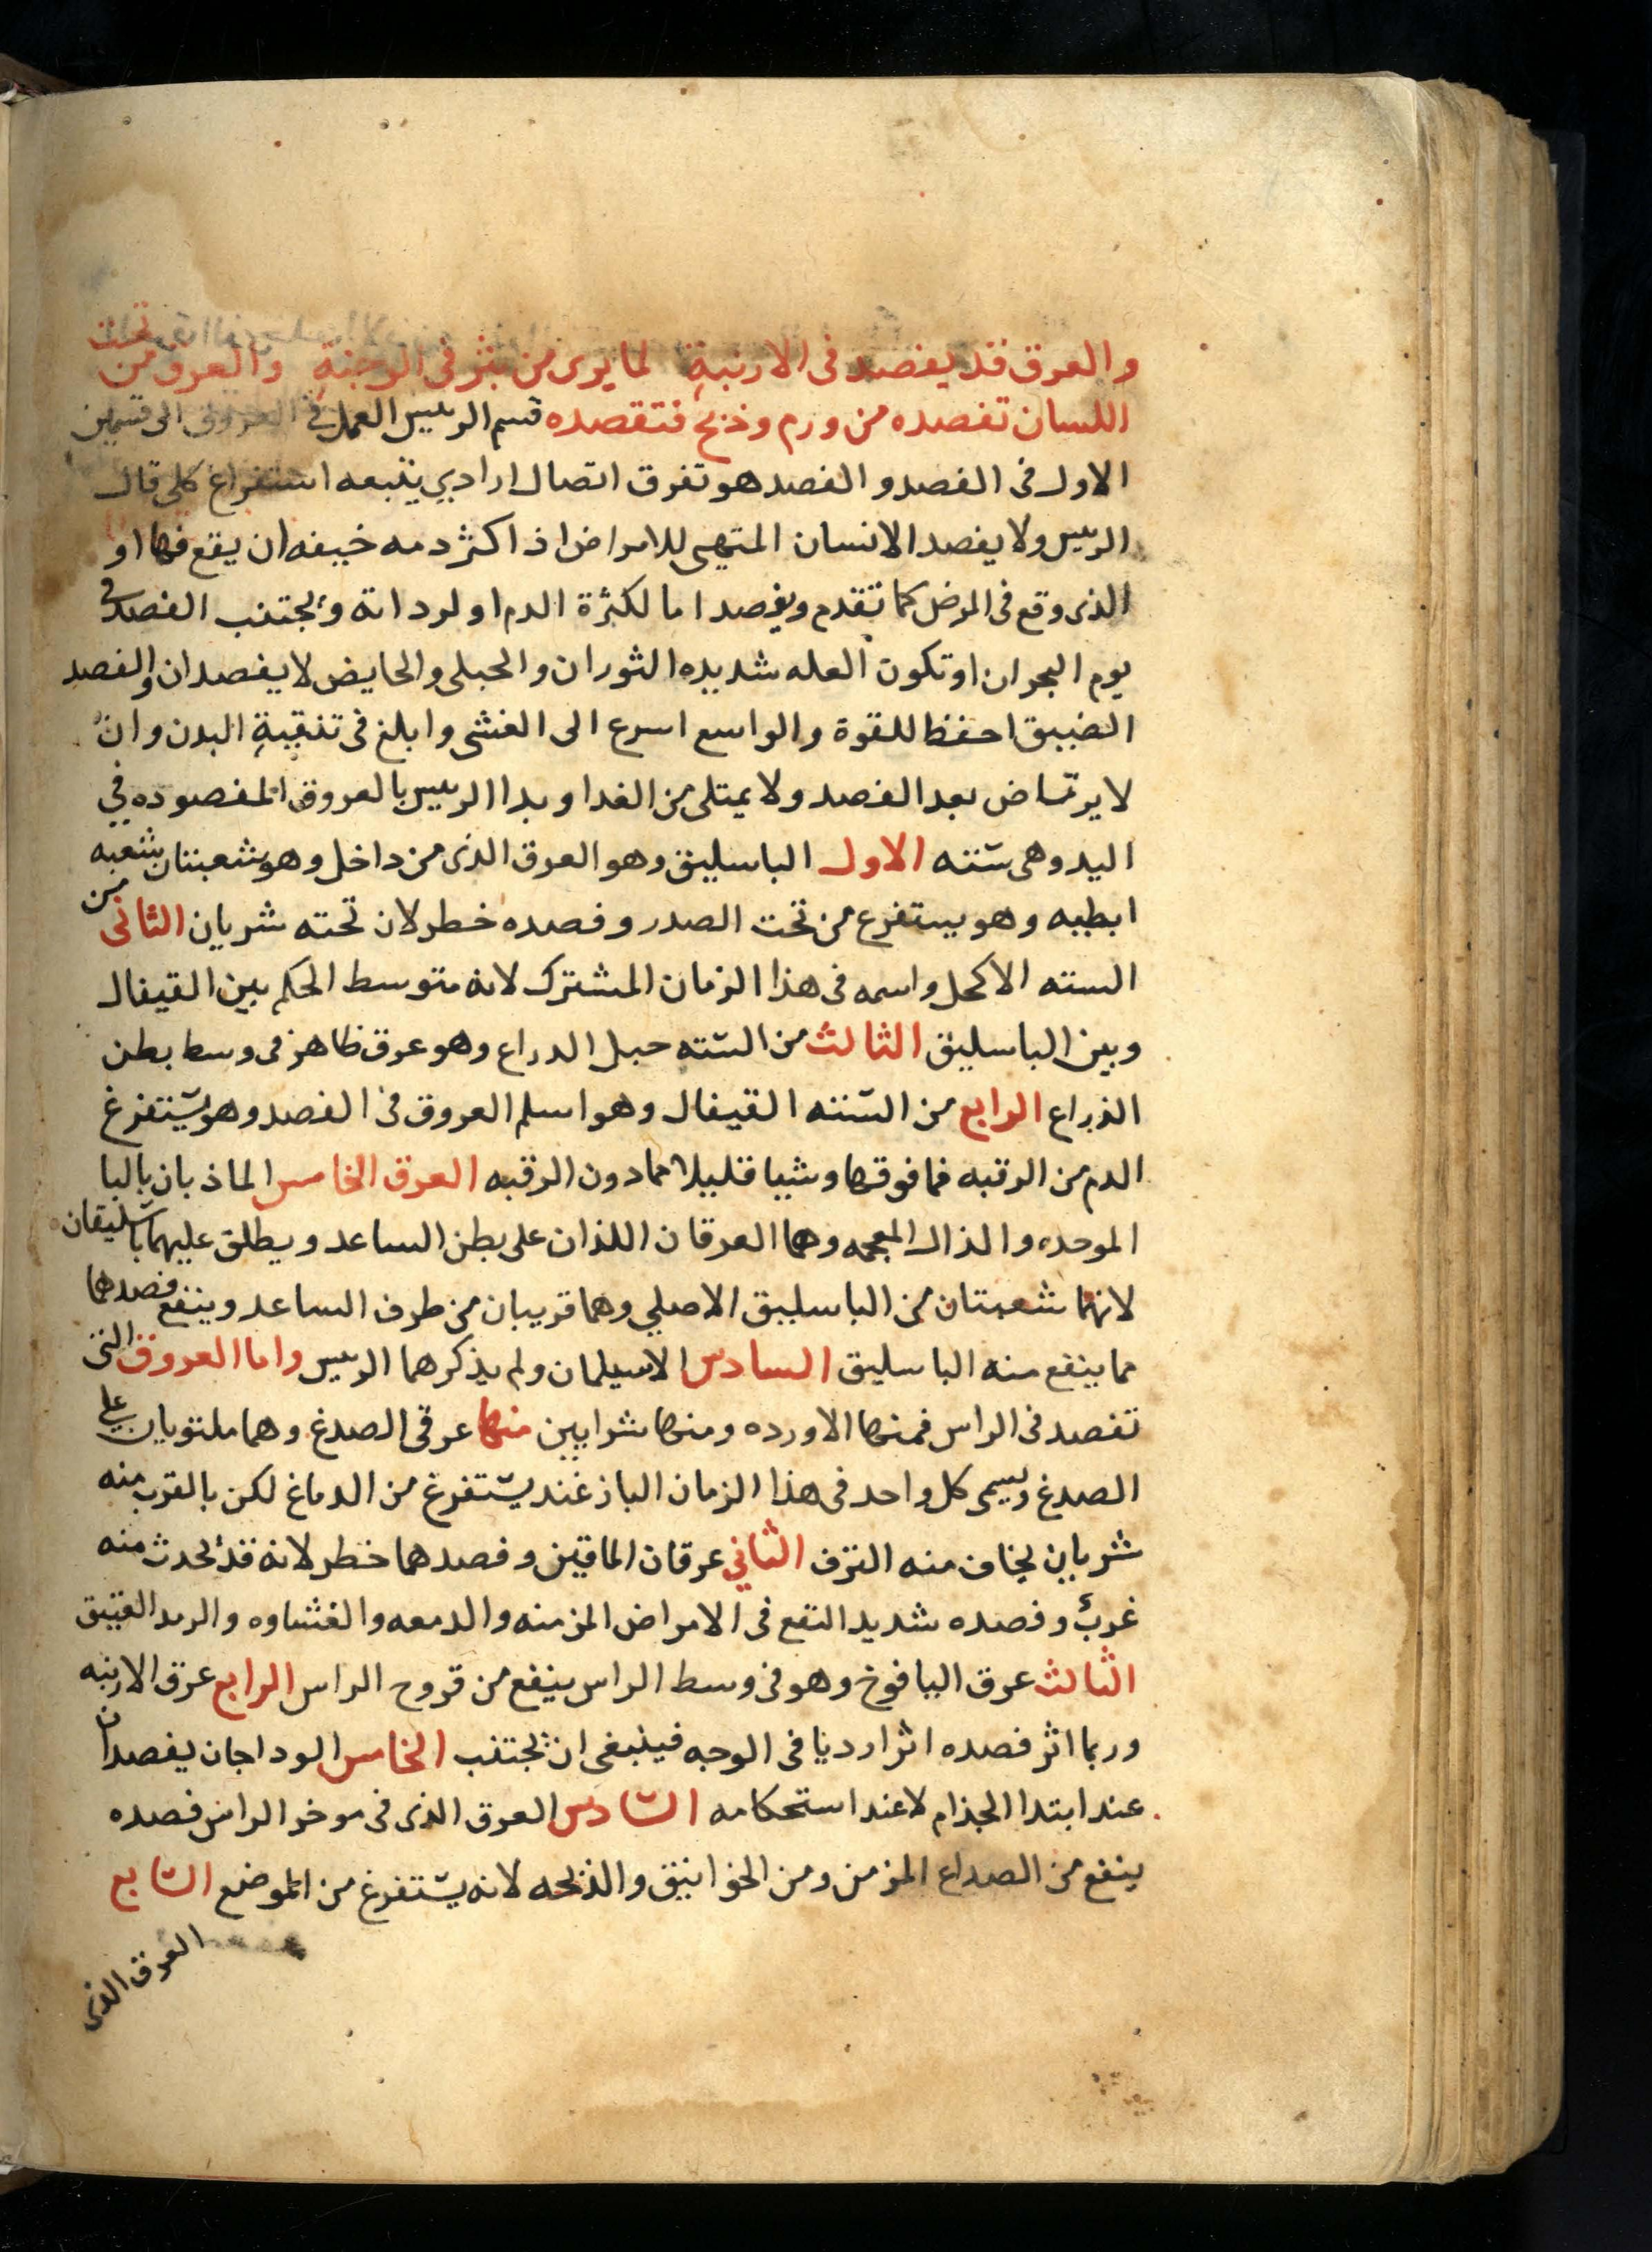 والعرق قد يفصد فى الارنبةِ لما يرى من بثر فى الوجنةِ والعرق من تحت
اللسان تفصده من ورم وذبح فتقصده قسم الرييس العمل في العروق الى قسمين
الاول فى الفصد والفصد هو تفرق اتصال ارادي يتبعه استفراغ كلى قال
الرييس ولا يفصد الانسان المتهيى للامراض اذا كثر دمه خيفه ان يقع فيها او
الذى وقع فى المرض كما تقدم ويفصد اما لكثرة الدم او لرداته ويجتنب الفصد فى
يوم البحران او تكون العله شديده الثوران والحبلى والحايض لا يفصدان والفصد
الضييق احفظ للقوة والواسع اسرع الى الغشى وابلغ فى تنقيةِ البدن وان
لا يرتاض بعد الفصد ولا يمتلى من الغدا وبدا الرييس بالعروق المفصوده في
اليد وهى ستته الاول الباسليق وهو العرق الذى من داخل وهو شعبتان شعبه
ابطيه وهو يستفرع من تحت الصدر وفصده خطر لان تحته شريان الثانى من
السته الاكحل واسمه فى هذا الزمان المشترك لانه متوسط الحكم بين القيفال
وبين الباسليق الثالث من السته حبل الدراع وهو عرق ظاهر فى وسط بطن
الذراع الرابع من الستته القيفال وهو اسلم العروق فى الفصد وهو يستفرغ
الدم من الرقبه فما فوقها وشيا قليلا مما دون الرقبه العرق الخامس الماذبان بالبا
الموحده والذال المعجمه وهما العرقان اللذان على بطن الساعد ويطلق عليهما باسليقان
لانهما شعبتان من الباسليق الاصلي وهما قريبان من طرف الساعد وينفع فصدهما
مما ينفع منه الباسليق السادس الاسيلمان ولم يذكرهما الرييس واما العروق التى
تفصد فى الراس فمنها الاورده ومنها شرايين منها عرقى الصدغ وهما ملتويان على
الصدغ ويسمى كل واحد فى هذا الزمان البازغند يستفرغ من الدماغ لكن بالقرب منه
شريان يخاف منه النزف الثاني عرقان الماقين وفصدهما خطر لانه قد يحدث منه
غرب وفصده شديد النفع فى الامراض المزمنه والدمعه والغشاوه والرمد العتيق
الثالث عرق اليافوخ وهو فى وسط الراس ينفع من قروح الراس الرابع عرق الارنبه
وربما اثر فصده اثرا رديا فى الوجه فينبغى ان يجتنب الخامس الوداجان يفصدان
عند ابتدا الجذام لا عند استحكامه السادس العرق الذى فى موخر الراس فصده
ينفع من الصداع المزمن ومن الخوانيق والذبحه لانه يستفرغ من الموضع السابع
العرق الذى